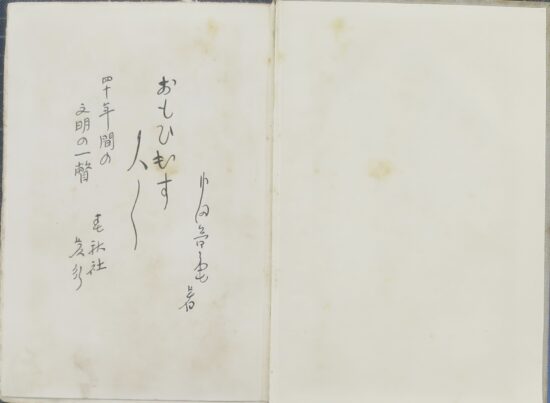 内田魯庵著
おもひ出す
人〱
四十年間の
文明の一瞥
春秋社
発行